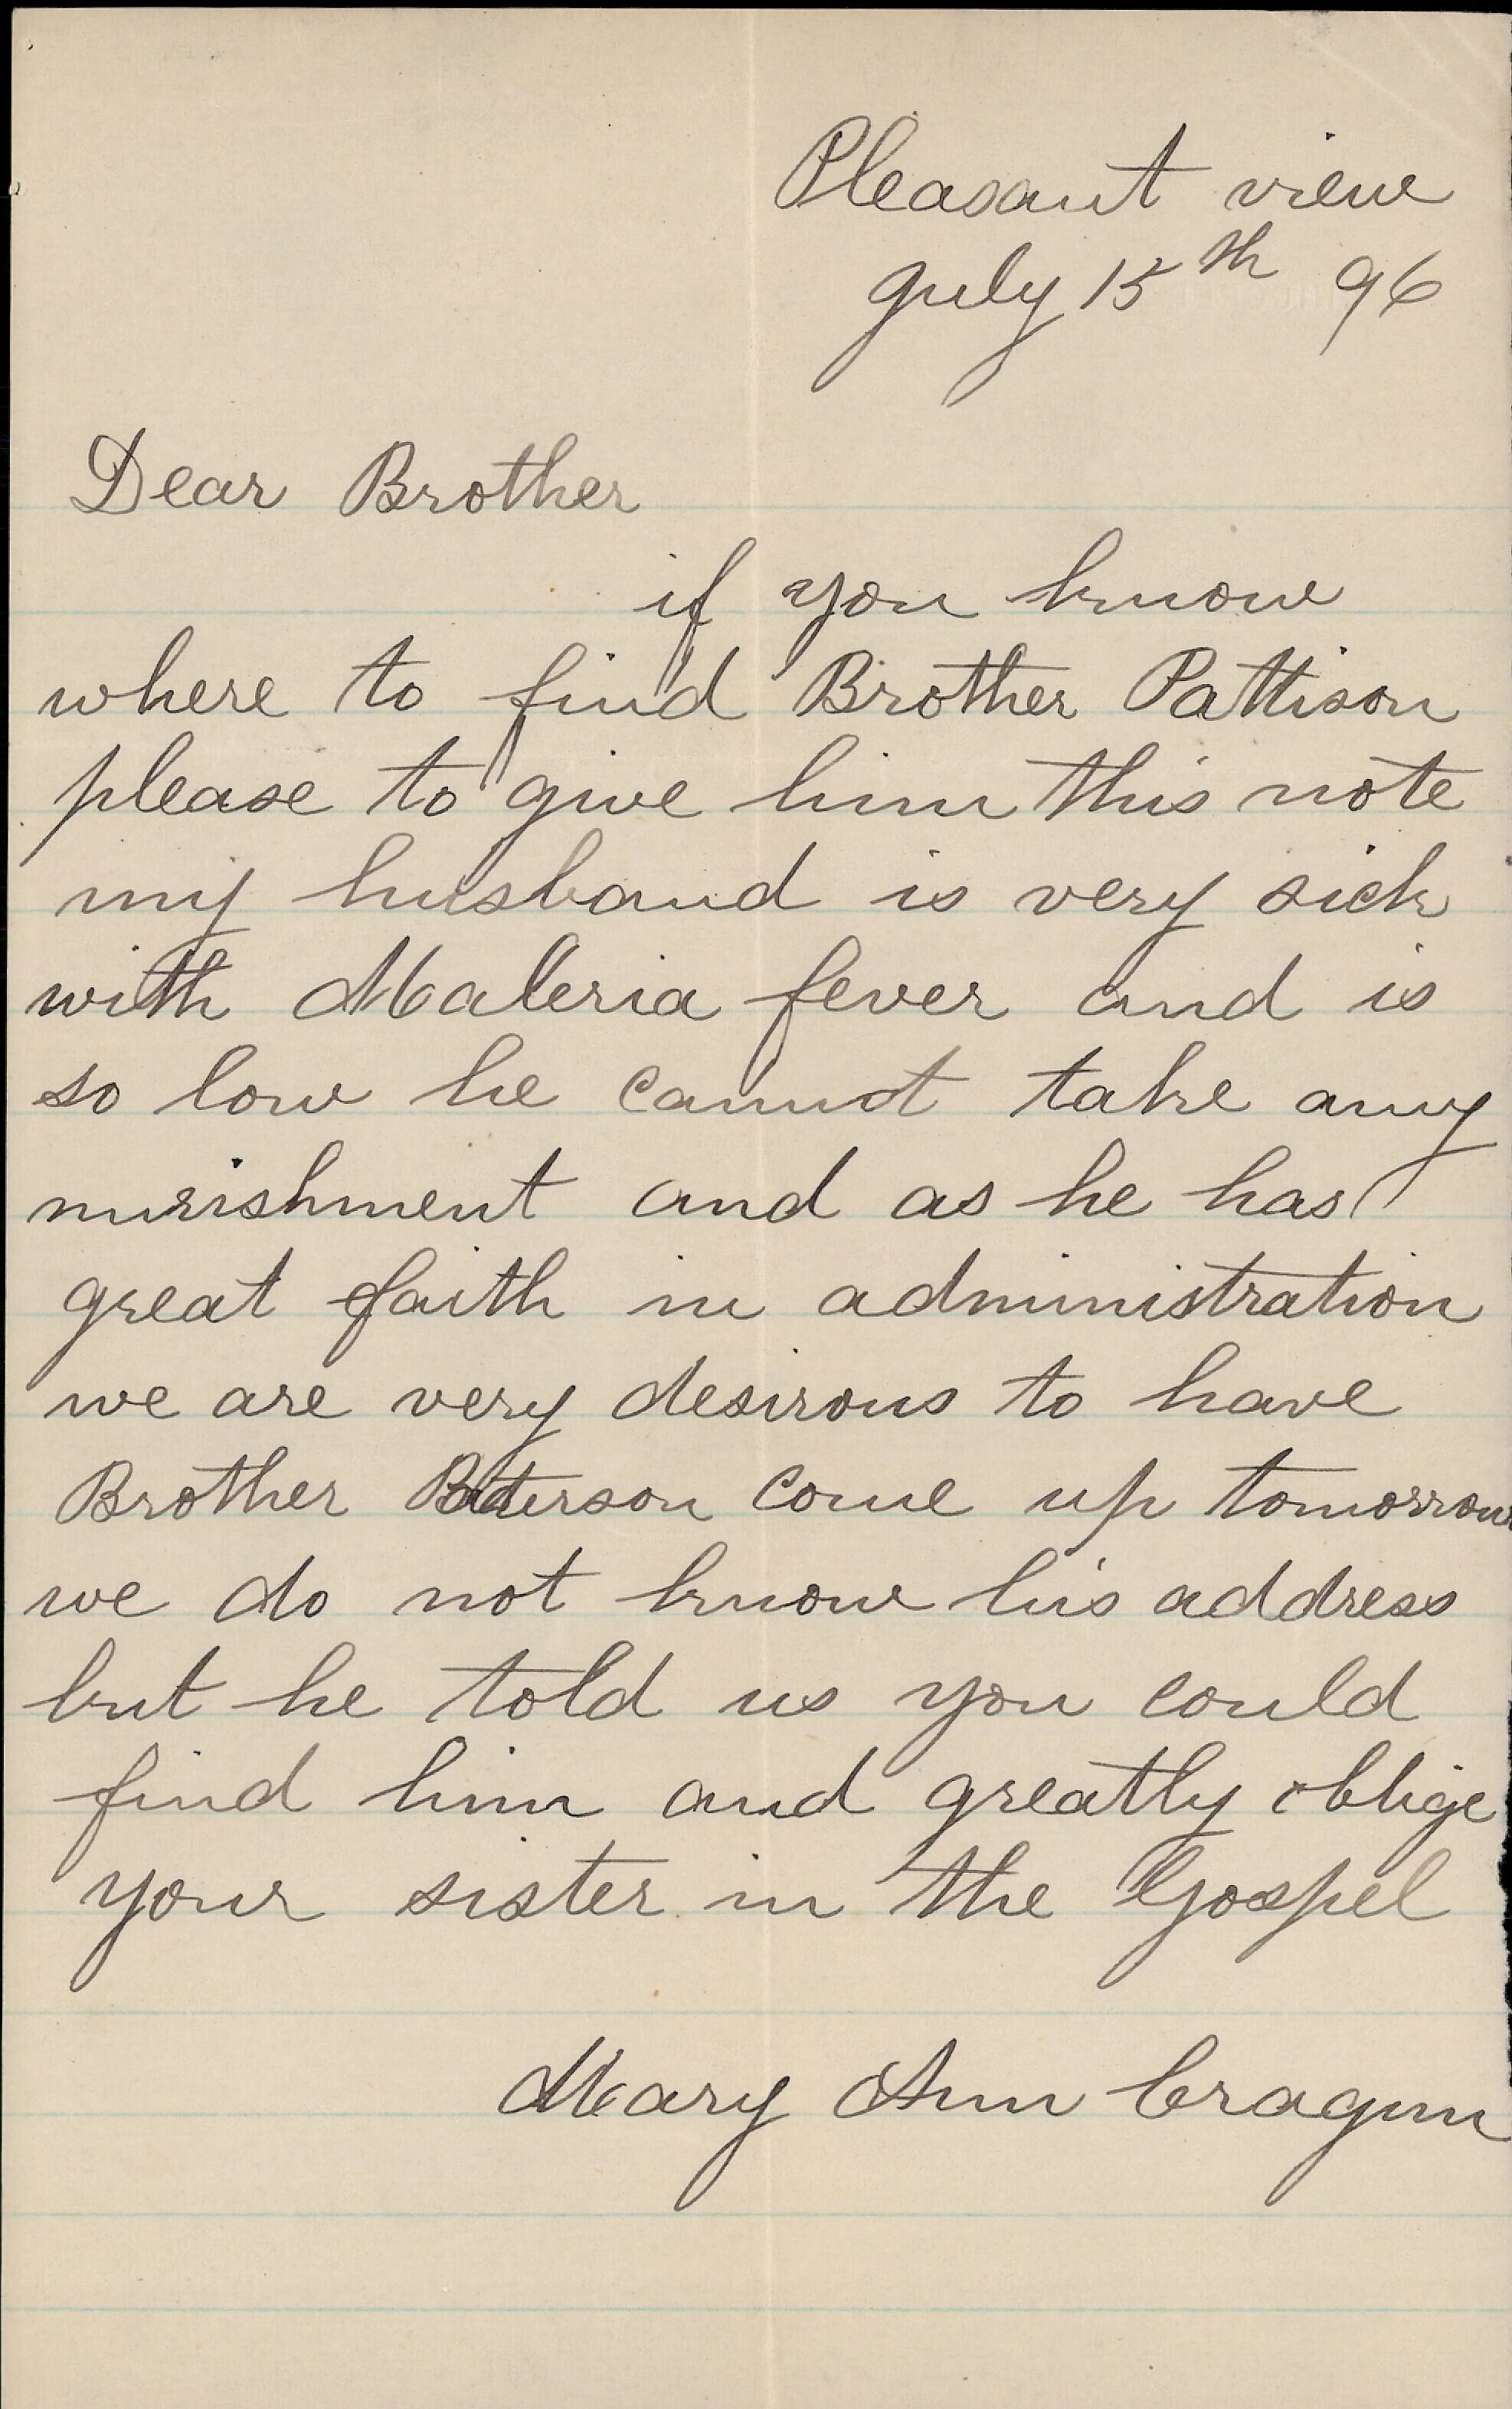 Pleasant view
July 15th 96
Dear Brother
if you know
where to find Brother Pattison
please to give him this note
my husband is very sick
with Maleria fever and is
so low he cannot take any
nurishment and as he has
great faith in administration
we are very desirous to have
Brother Patterson come up tomorrow
we do not know his address
but he told us you could
find him and greatly oblige
your sister in the Gospel
Mary Ann Cragun